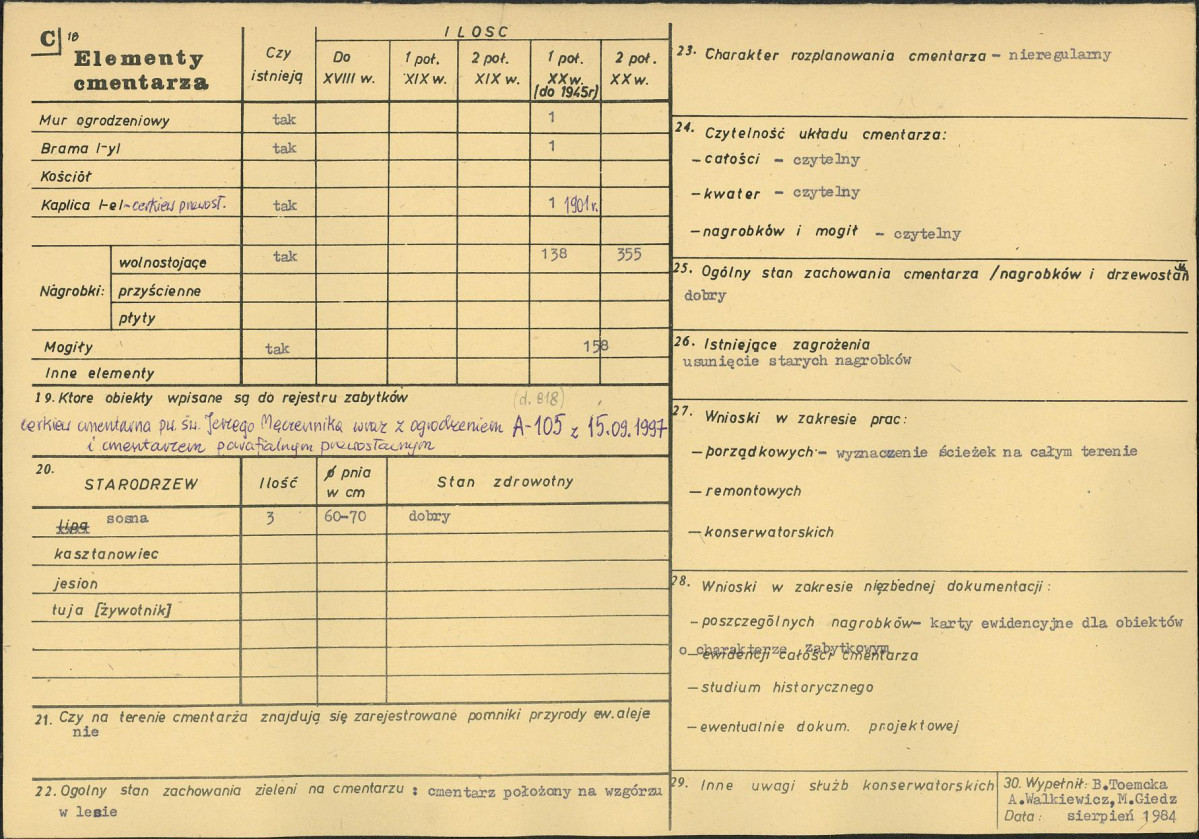 C 18
Elementy
cmentarza
Czy
istnieją
ILOSC
Do
XVIII w.
1 poł.
XIX w.
2 poł.
XIX w.
1 poł.
XX w.
(do 1945r)
2 poł.
XX w.
Mur ogrodzeniowy tak 1
Brama I-yI tak 1
Kościół
Kaplica I-eI - cerkiew prawosł. tak 1 1901 r.
Nagrobki:
wolnostojące tak 138 355
przyścienne
płyty
Mogiły tak 158
Inne elementy
19. Ktore obiekty wpisane są do rejestru zabytków (d. 818)
cerkiew cmentarna pw. św. Jerzego Męczennika wraz z ogrodzeniem A-105 z 15.09.1997
i cmentarzem parafialnym prawosławnym
20.
STARODRZEW
Ilość
ø pnia
w cm
Stan zdrowotny
lipa sosna 3 60-70 dobry
kasztanowiec
jesion
tuja [żywotnik]
21. Czy na terenie cmentarża znajdują się zarejestrowane pomniki przyrody ew. aleje
nie
22. Ogolny stan zachowania zieleni na cmentarzu : cmentarz położony na wzgórzu
w lesie
23. Charakter rozplanowania cmentarza - nieregularny
24. Czytelność układu cmentarza:
- całości - czytelny
- kwater - czytelny
- nagrobków i mogił - czytelny
25. Ogólny stan zachowania cmentarza /nagrobków i drzewostanu
dobry
26. Istniejące zagrożenia
usunięcie starych nagrobków
27. Wnioski w zakresie prac:
- porządkowych - wyznaczenie ścieżek na całym terenie
- remontowych
- konserwatorskich
28. Wnioski w zakresie niezbędnej dokumentacji:
- poszczególnych nagrobków - karty ewidencyjne dla obiektów
o charakterze zabytkowym
- ewidencji całości cmentarza
- studium historycznego
- ewentualnie dokum. projektowej
29. Inne uwagi służb konserwatorskich
30. Wypełnił: B.Toemcka
A.Walkiewicz, M.Giedz
Data: sierpień 1984